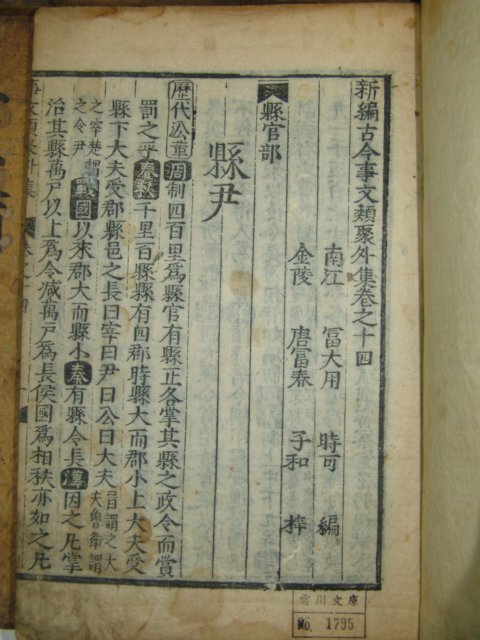 新編古今事文類聚外集卷之十四
南江 冨大用 時可 編
金陵 唐富春 子和 梓
縣官部
縣尹
歷代沿革 周制四百里爲縣官有縣正各掌其縣之政令而賞
罰之乎春秋千里百縣縣有四郡時縣大而郡小上大夫受
縣下大夫受郡縣邑之長曰宰曰尹曰公曰大夫
晉謂之大
夫魯衛謂
之宰楚謂
之令尹
戰國以來郡大而縣小秦有縣令長漢因之凡掌
治其縣萬戶以上爲令减萬戶爲長侯國爲相秩亦如之凡
雲川文庫
No. 1795